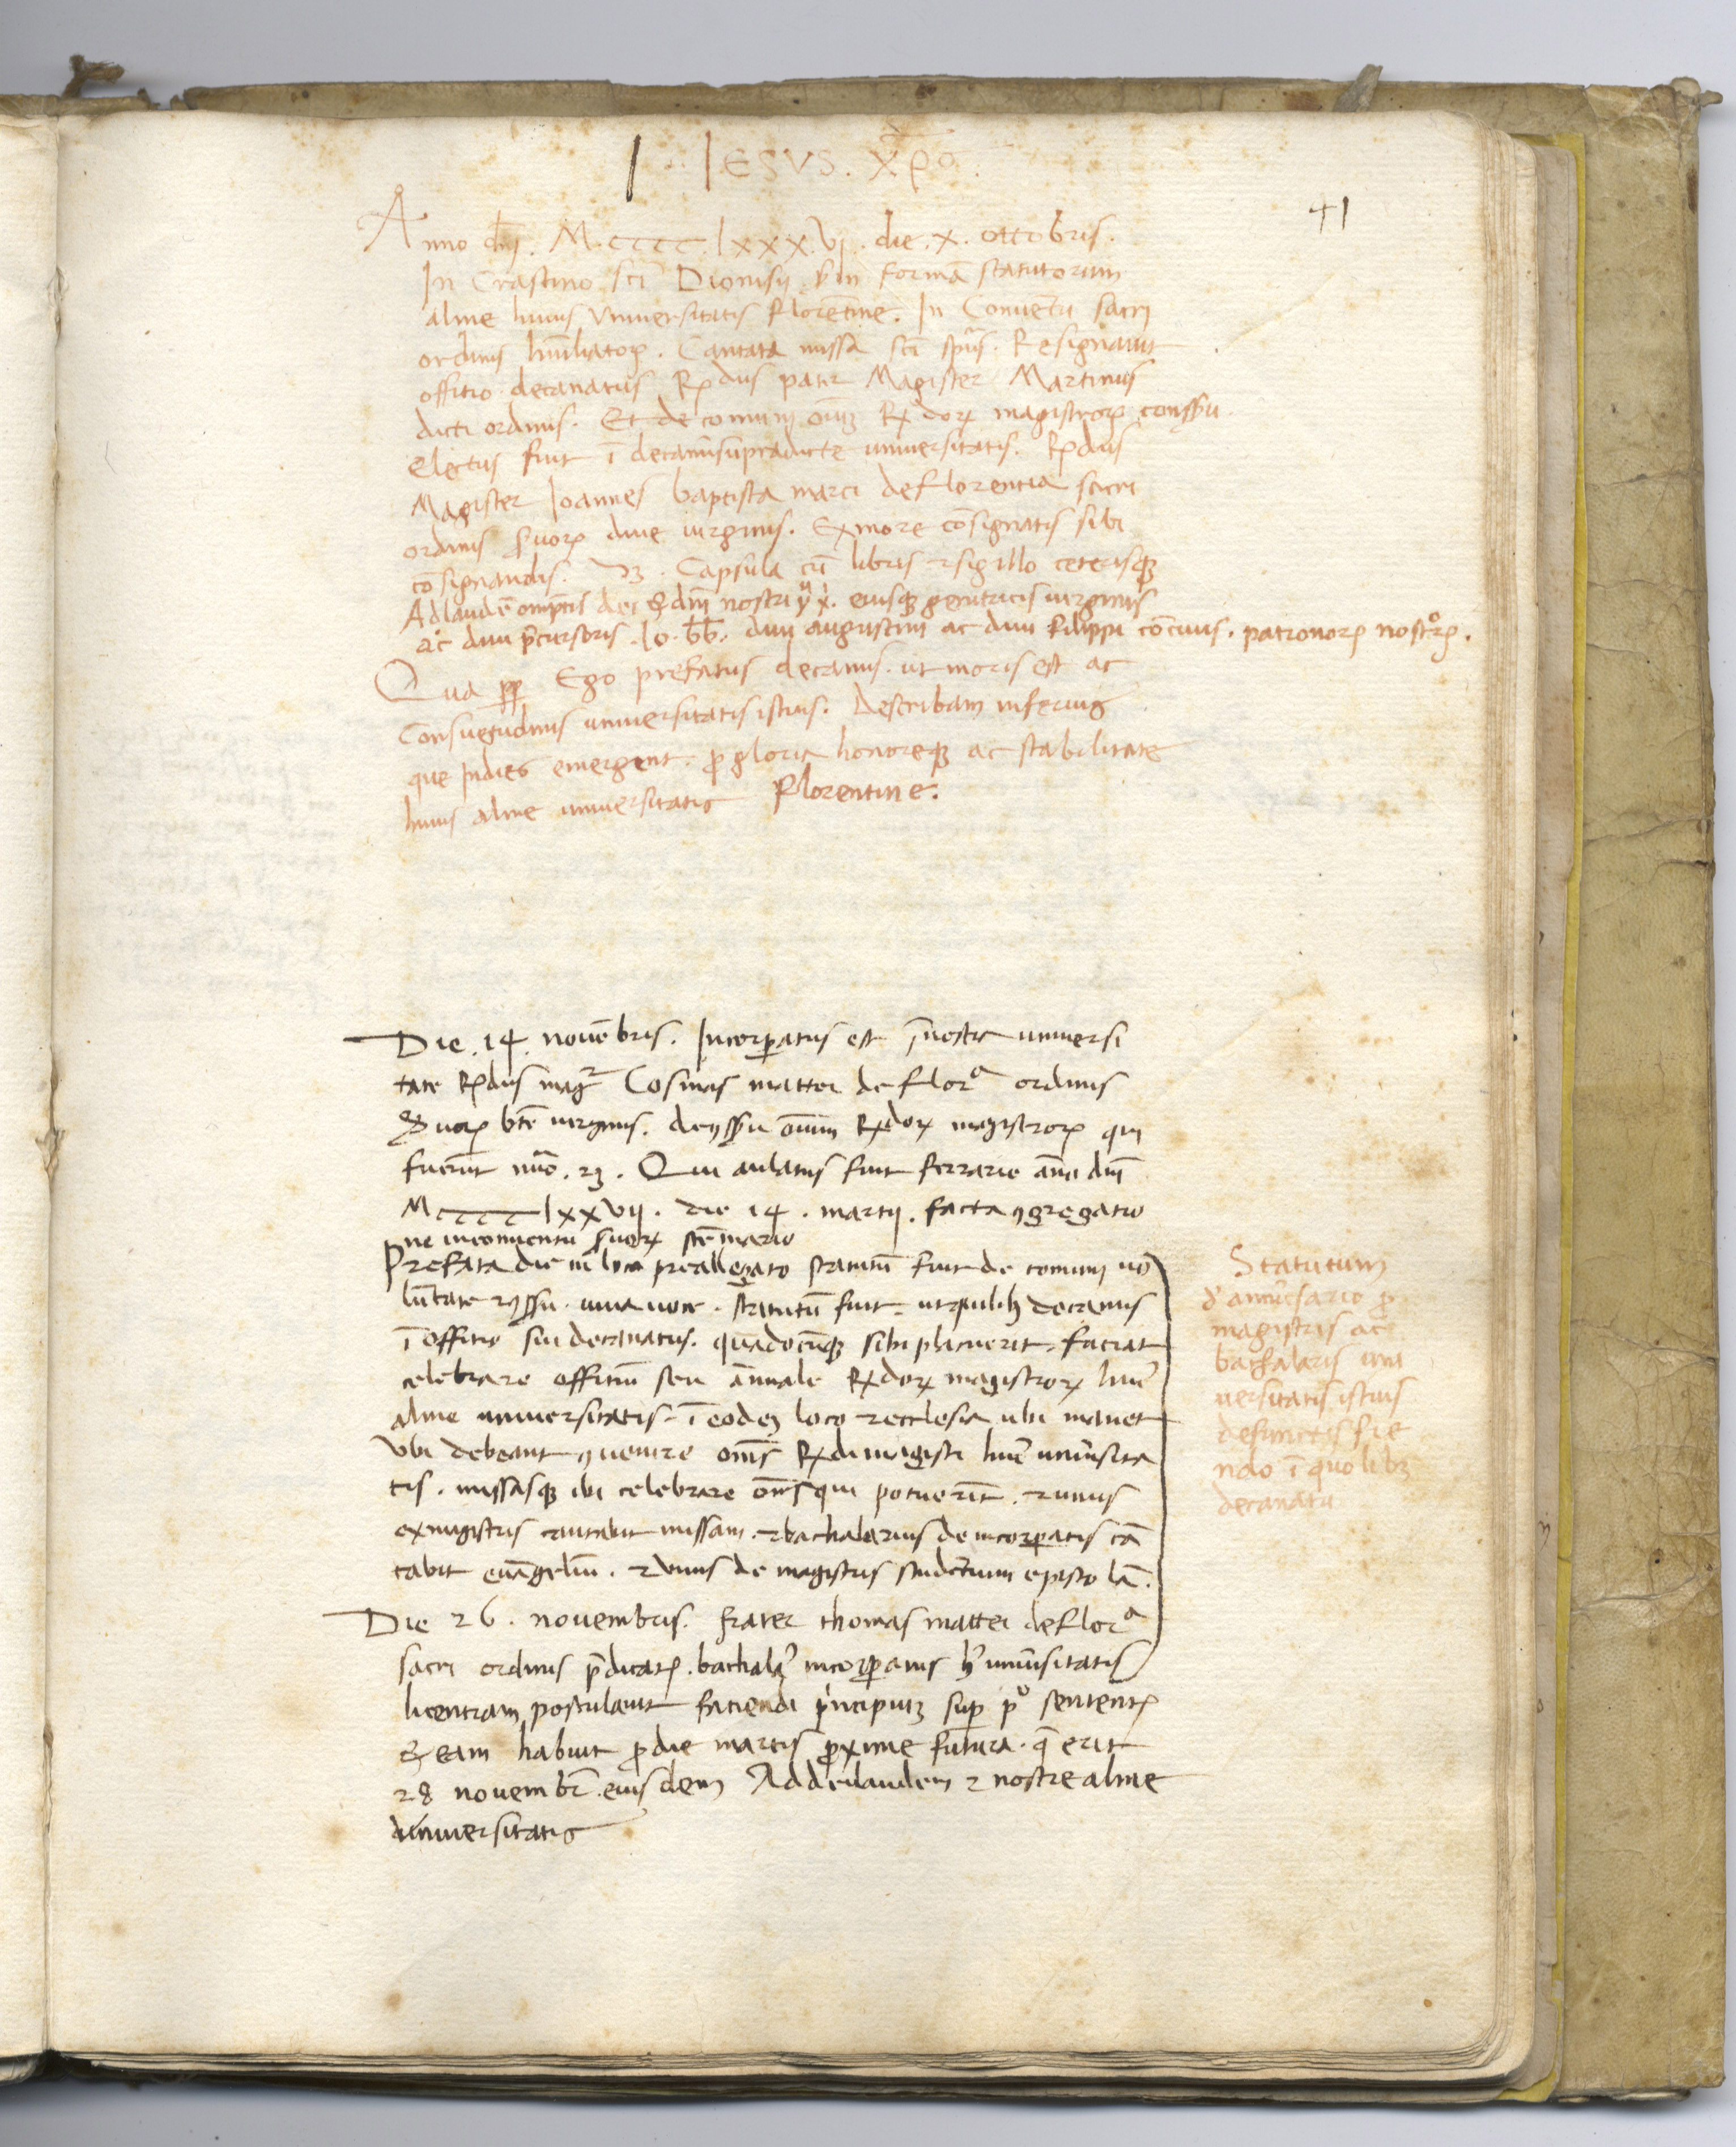 Jesus. xp̄o
41
Anno dnī. M.cccc.lxxxvj. die. x. ottobris.
In Crastino sci Dionisij. formā statutorum
alme huius Vniuersitatis florētine. In Conuentu sacri
ordinis humiliator. Cantata missa sci spūs. Resignauit
offitio decanatus R dus pater Magister Martinus
dicti ordinis. Et de comuni R dor magistror conssu
Electus fuit ī decanū supradicte uniuersitatis. R dus
Magister Joannes baptista marci de florentia sacri
ordinis seruor diue uirginis. Ex more cōsignatis sibi
cōsignandis. Capsula cū libris & sigillo ceterisq
Ad laudē dei & dnī nostri eiusq genitricis uirginis
ac diui p̄cursoris .Io. bb. diui augustini ac diui filippi cōciuis. patronor nostror.
Qua pp Ego prefatus decanus. ut moris est ac
Consuetudinis uniuersitatis istius. Describam inferius
que Indies emergent. p gloria honoreq ac stabilitate
huius alme uniuersitatis florentine.
Die. 14. nouēbris. Incorporatus est ī nostra uniuersi
tate R dus mag Cosmas mattei de flor^a ordinis
Seruor btē uirginis. de 9ssu omīum R dor magistror qui
fuerūt nuō. 23. Qui aulatus fuit ferrarie anno dnī
Mcccclxxvij. die 14. martij. facta 9gregatio
ne in conuentu seruor scē marie
Prefata die in loco preallegato statutū fuit de comuni uo
lūtate & 9ssu. una uoce. statutū fuit. ut quilib decanus
ī offitio sui decanatus. quādocūq sibi placuerit. faciat
celebrare offitiū seu ānuale R dor magistror hui
alme uniuersitatis. ī eodem loco & ecclesia ubi manet
Vbi debeant 9uenire omēs R di magistri hui uniuersita
tis. missasq ibi celebrare omēs qui potuerīt. & unus
ex magistris cantabit missam. & bachalarius de incorporatis cā
tabit euāgeliū. & unus de magistris studentium epistolā.
Statutum
d anniuersario p
magistris ac
bachalaris uni
uersitatis istius
defunctis fie
ndo ī quolibz
decanatu
Die 26. nouembris. frater thomas mattei de flor^a
sacri ordinis p̄dicator. bachalar incorporatus h uniuersitatis
licentiam postulauit faciendi principium sup p^o sententiar
& eam habuit p die martis proxime futura. q̄ erit
28 nouembr. eiusdem Ad dei laudem & nostre alme
uniuersitatis